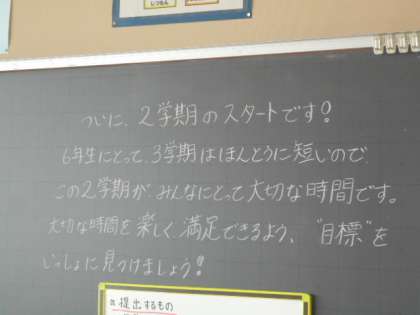 しつもん
ついに、2学期のスタートです!
6年生にとって、3学期はほんとうに短いので、
この2学期が、みんなにとって大切な時間です。
大切な時間を楽しく満足できるよう、"目標"を
いっしょに見つけましょう!
提出するもの